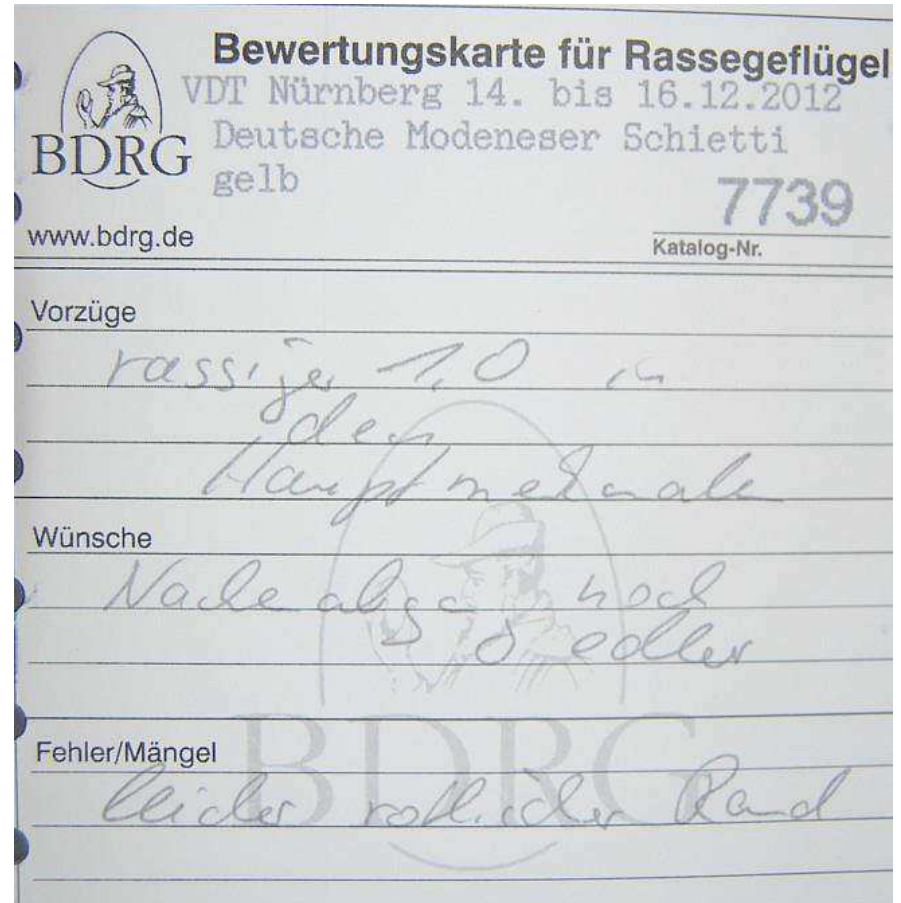 Bewertungskarte für Rassegeflügel
VDT Nürnberg 14. bis 16.12.2012
BDRG
Deutsche Modeneser Schietti
gelb
7739
www.bdrg.de
Katalog-Nr.
Vorzüge
rassiger 1,0 in
den
Hauptmerkmalen
Wünsche
Nackenabgang noch
edler
BDRG
Fehler/Mängel
leider rötlicher Rand